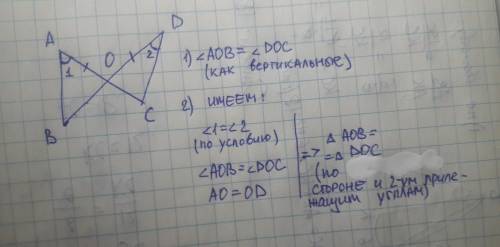 A
D
O
1
2
B
C
1) ∠AOB = ∠DOC
(как вертикальные)
2) имеем:
∠1=∠2
(по условию)
∠AOB=∠DOC
AO=OD
=> △ AOB=
=△ DOC
(по
стороне и 2-ум приле-
жащим углам)